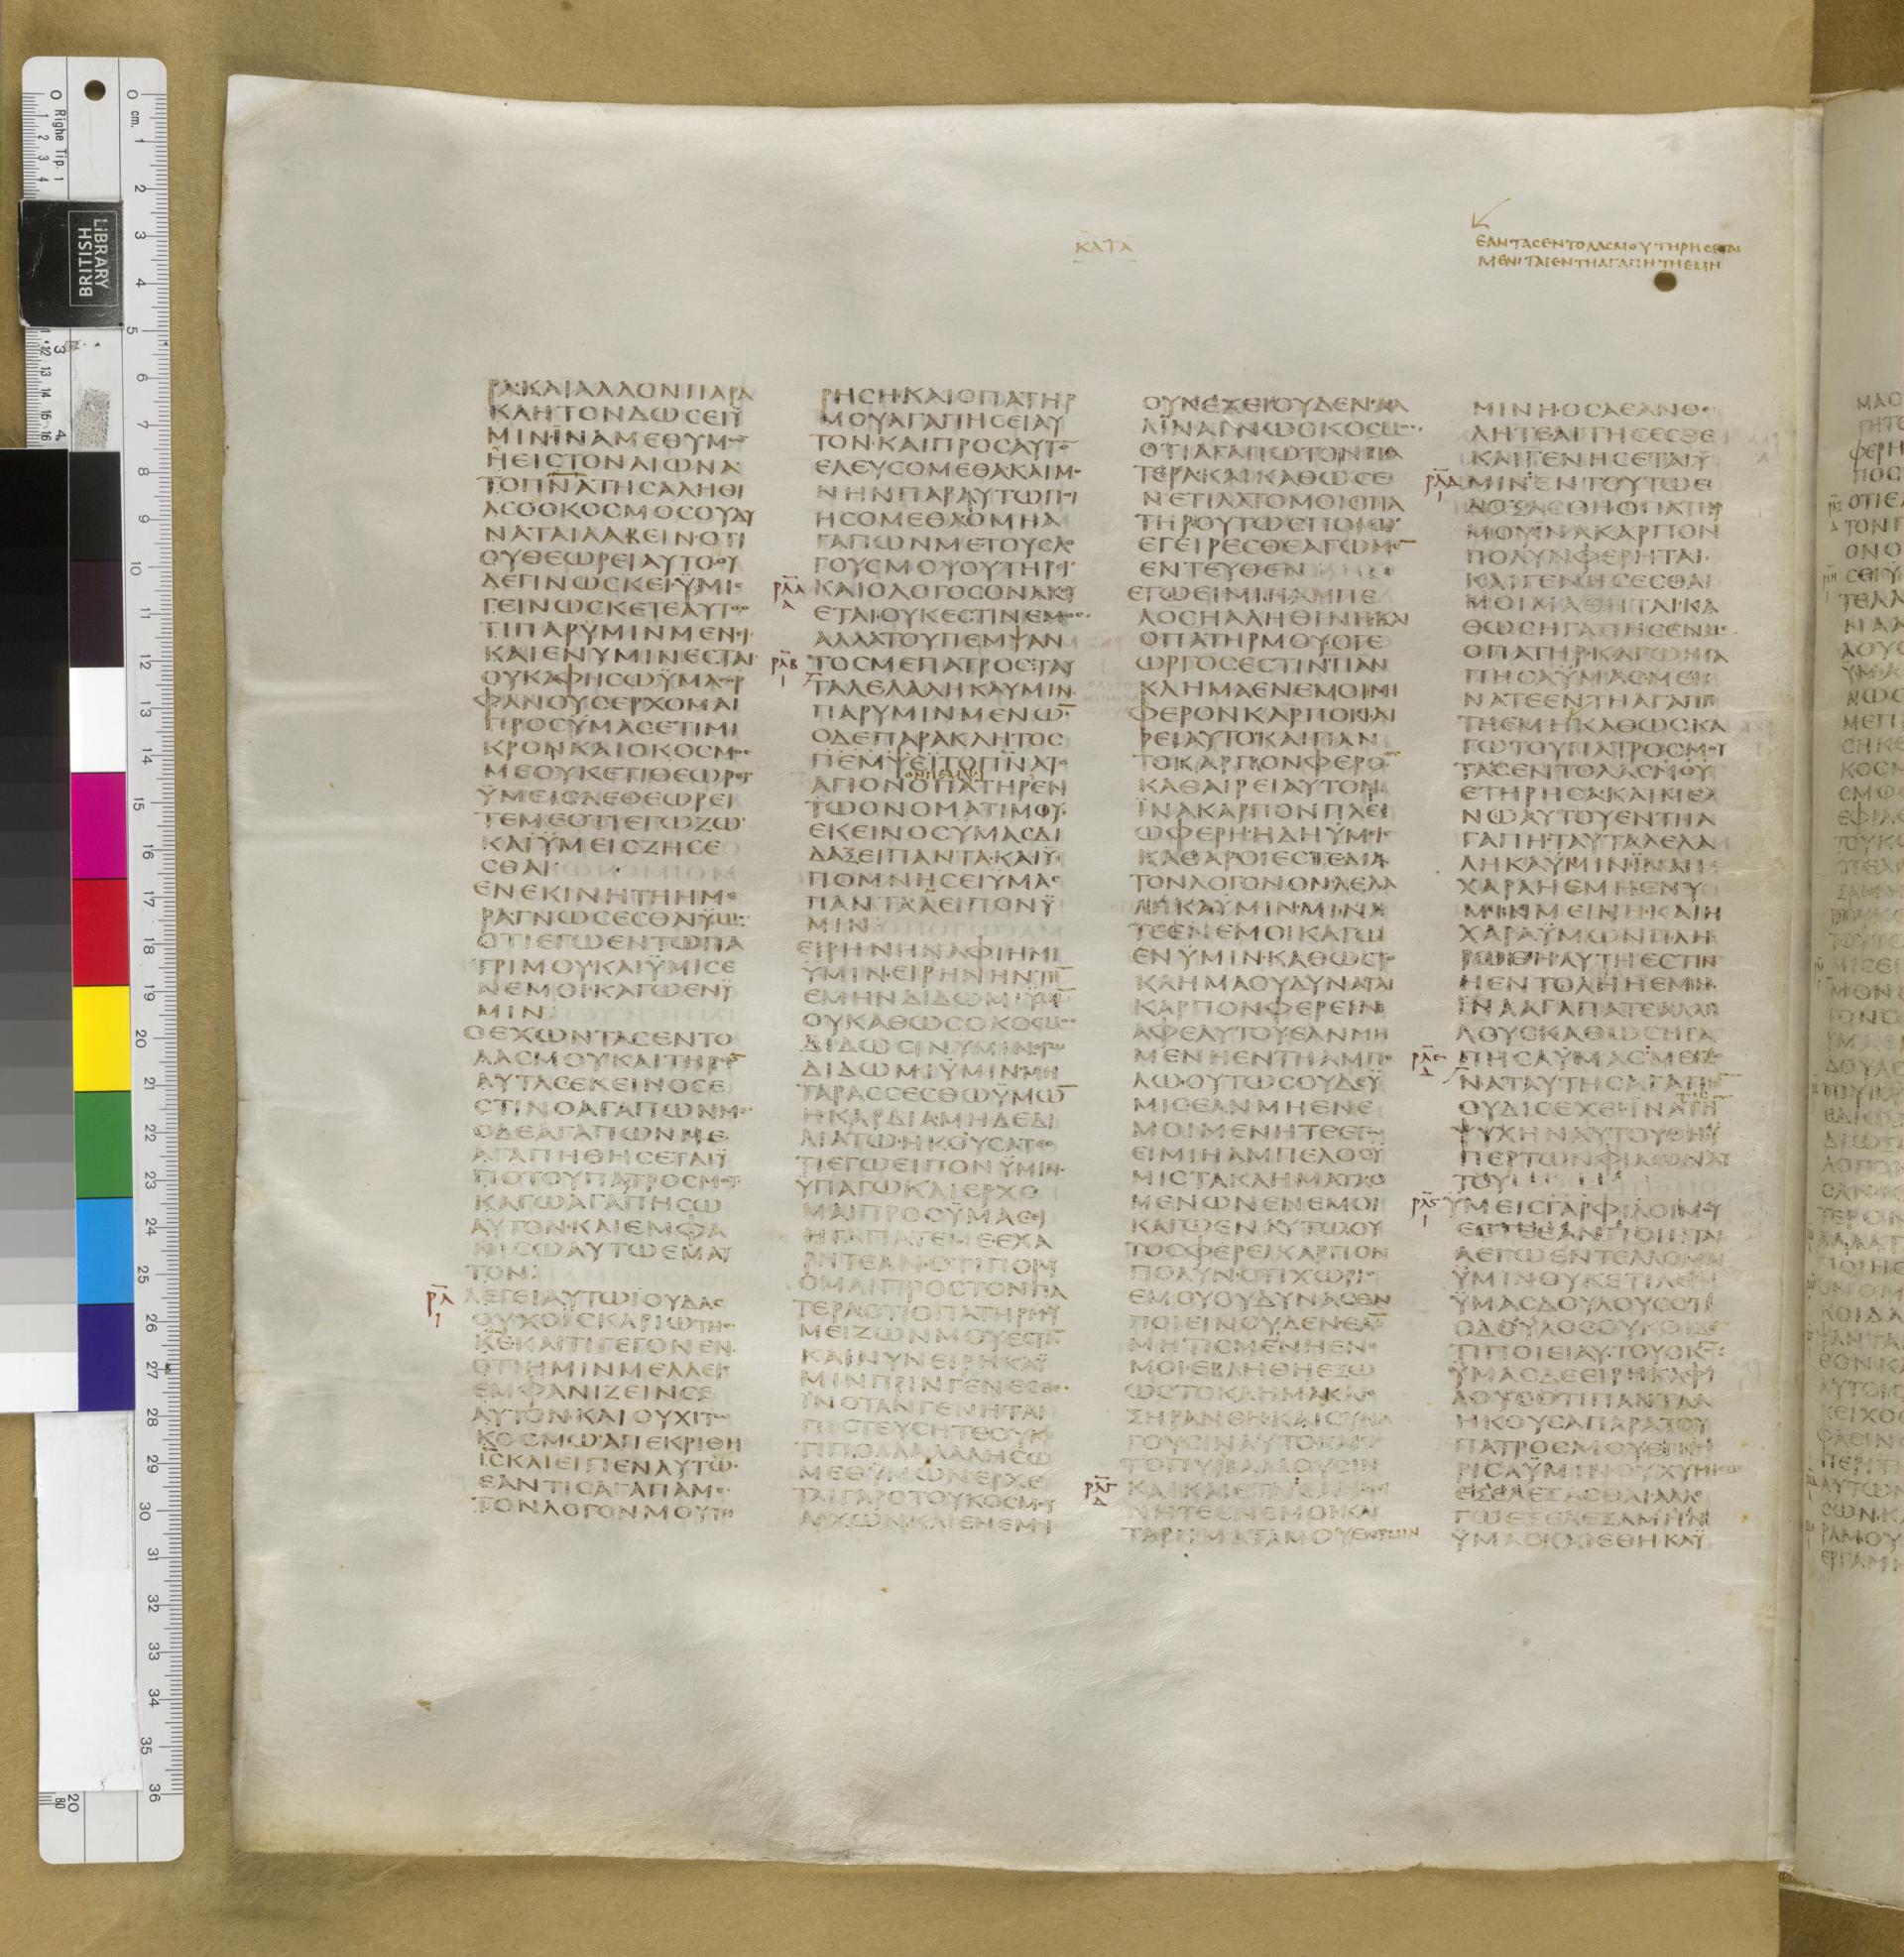 ΚΑΤΑ
ΕΑΝΤΑСΕΝΤΟΛΑСΜΟΥΤΗΡΗСΗΤΑΙ
ΜΕΝΙΤΑΙΕΝΤΗΑΓΑΠΗΤΗΕΜΗ
ΡΑ·ΚΑΙΑΛΛΟΝΠΑΡΑ
ΚΛΗΤΟΝΔΩСΕΙΫ
ΜΙΝ·ΪΝΑΜΕΘΥΜ
ΗΕΙСΤΟΝΑΙΩΝΑ
ΤΟΠΝΑΤΗСΑΛΗΘΙ
ΑСΟΟΚΟСΜΟСΟΥΔΥ
ΝΑΤΑΙΛΑΒΕΙΝ·ΟΤΙ
ΟΥΘΕΩΡΕΙΑΥΤΟΟΥ
ΔΕΓΙΝΩСΚΕΙΫΜΙС
ΓΕΙΝΩСΚΕΤΕΑΥΤΟ
ΤΙΠΑΡΫΜΙΝΜΕΝΙ
ΚΑΙΕΝΥΜΙΝΕСΤΑΙ
ΟΥΚΑΦΗСΩΫΜΑСΟΡ
ΦΑΝΟΥСΕΡΧΟΜΑΙ
ΠΡΟСΫΜΑСΕΤΙΜΙ
ΚΡΟΝΚΑΙΟΚΟСΜΟС
ΜΕΟΥΚΕΤΙΘΕΩΡΕΙ
ΫΜΕΙСΔΕΘΕΩΡΕΙ
ΤΕΜΕΟΤΙΕΓΩΖΩ
ΚΑΙΫΜΕΙСΖΗСΕ
СΘΑΙ
ΕΝΕΚΙΝΗΤΗΗΜΕ
ΡΑΓΝΩСΕСΘΑΙΫΜΙС
ΟΤΙΕΓΩΕΝΤΩΠΑ
ΤΡΙΜΟΥΚΑΙΫΜΙСΕ
ΝΕΜΟΙ·ΚΑΓΩΕΝΫ
ΜΙΝ
ΟΕΧΩΝΤΑСΕΝΤΟ
ΛΑСΜΟΥΚΑΙΤΗΡΩ
ΑΥΤΑСΕΚΕΙΝΟСΕ
СΤΙΝΟΑΓΑΠΩΝΜΕ
ΟΔΕΑΓΑΠΩΝΜΕ
ΑΓΑΠΗΘΗСΕΤΑΙΫ
ΠΟΤΟΥΠΑΤΡΟСΜΟΥ
ΚΑΓΩΑΓΑΠΗСΩ
ΑΥΤΟΝ·ΚΑΙΕΜΦΑ
ΝΙСΩΑΥΤΩΕΜΑΥ
ΤΟΝ
ΡΛ
Ι
ΛΕΓΕΙΑΥΤΩΪΟΥΔΑС
ΟΥΧΟΪСΚΑΡΙΩΤΗС
ΚΕ·ΚΑΙΤΙΓΕΓΟΝΕΝ
ΟΤΙΗΜΙΝΜΕΛΛΕΙС
ΕΜΦΑΝΙΖΕΙΝСΕ
ΑΥΤΟΝ·ΚΑΙΟΥΧΙΤΩ
ΚΟСΜΩ·ΑΠΕΚΡΙΘΗ
ΙСΚΑΙΕΙΠΕΝΑΥΤΩ
ΕΑΝΤΙСΑΓΑΠΑΜΕ
ΤΟΝΛΟΓΟΝΜΟΥΤΗ
ΡΗСΗ·ΚΑΙΟΠΑΤΗΡ
ΜΟΥΑΓΑΠΗСΕΙΑΥ
ΤΟΝ·ΚΑΙΠΡΟСΑΥΤΟ
ΕΛΕΥСΟΜΕΘΑΚΑΙΜΟ
ΝΗΝΠΑΡΑΥΤΩΠΟΙ
ΗСΟΜΕΘΑ·ΟΜΗΑ
ΓΑΠΩΝΜΕΤΟΥСΛΟ
ΓΟΥСΜΟΥΟΥΤΗΡΙ
ΡΛΑ
Α
ΚΑΙΟΛΟΓΟСΟΝΑΚΟΥ
ΕΤΑΙ·ΟΥΚΕСΤΙΝΕΜΟС
ΑΛΛΑΤΟΥΠΕΜΨΑΝ
ΡΛΒ
Ι
ΤΟСΜΕΠΑΤΡΟС·ΤΑΥ
ΤΑΛΕΛΑΛΗΚΑΥΜΙΝ
ΠΑΡΥΜΙΝΜΕΝΩ
ΟΔΕΠΑΡΑΚΛΗΤΟС
ΠΕΜΨΕΙΤΟΠΝΑΤΟ
ΑΓΙΟΝΟΠΑΤΗΡΕΝ
ΤΩΟΝΟΜΑΤΙΜΟΥ·
ΕΚΕΙΝΟСΥΜΑСΔΙ
ΔΑΞΕΙΠΑΝΤΑ·ΚΑΙΫ
ΠΟΜΝΗСΕΙΫΜΑС
ΠΑΝΤΑΑΕΙΠΟΝΫ
ΜΙΝ
ΕΙΡΗΝΗΝΑΦΙΗΜΙ
ΥΜΙΝ·ΕΙΡΗΝΗΝΤΗ
ΕΜΗΝΔΙΔΩΜΙΫΜΙ
ΟΥΚΑΘΩСΟΚΟСΜΟС
ΔΙΔΩСΙΝΥΜΙΝΕΓΩ
ΔΙΔΩΜΙΫΜΙΝΜΗ
ΤΑΡΑССΕСΘΩΫΜΩ
ΗΚΑΡΔΙΑΜΗΔΕΔΙ
ΛΙΑΤΩ·ΗΚΟΥСΑΤΕΟ
ΤΙΕΓΩΕΙΠΟΝΫΜΙΝ·
ΫΠΑΓΩΚΑΙΕΡΧΟ
ΜΑΙΠΡΟСΫΜΑСΕΙ
ΗΓΑΠΑΤΕΜΕΕΧΑ
ΡΗΤΕΑΝ·ΟΤΙΠΟΡΕΥ
ΟΜΑΙΠΡΟСΤΟΝΠΑ
ΤΕΡΑΟΤΙΟΠΑΤΗΡΜΟΥ
ΜΕΙΖΩΝΜΟΥΕСΤΙ
ΚΑΙΝΥΝΕΙΡΗΚΑΫ
ΜΙΝΠΡΙΝΓΕΝΕСΘΑΙ
ΙΝΟΤΑΝΓΕΝΗΤΑΙ
ΠΙСΤΕΥСΗΤΕΟΥΚΕ
ΤΙΠΟΛΛΑΛΑΛΗСΩ
ΜΕΘΥΜΩΝΕΡΧΕ
ΤΑΙΓΑΡΟΤΟΥΚΟСΜΟΥ
ΑΡΧΩΝ·ΚΑΙΕΝΕΜΗ
ΟΥΝΕΧΕΙΟΥΔΕΝ·ΑΛ
ΛΙΝΑΓΝΩΟΚΟСΜΟС
ΟΤΙΑΓΑΠΩΤΟΝΠΑ
ΤΕΡΑ·ΚΑΙΚΑΘΩСΕ
ΝΕΤΙΛΑΤΟΜΟΙΟΠΑ
ΤΗΡΟΥΤΩСΠΟΙΩ
ΕΓΕΙΡΕСΘΕΑΓΩΜΕ
ΕΝΤΕΥΘΕΝ
ΕΓΩΕΙΜΙΗΑΜΠΕ
ΛΟСΗΑΛΗΘΙΝΗΚΑΙ
ΟΠΑΤΗΡΜΟΥ·ΟΓΕ
ΩΡΓΟСΕСΤΙΝΠΑΝ
ΚΛΗΜΑΕΝΕΜΟΙΜΗ
ΦΕΡΟΝΚΑΡΠΟΝΑΙ
ΡΕΙΑΥΤΟΚΑΙΠΑΝ
ΤΟΚΑΡΠΟΝΦΕΡΟ
ΚΑΘΑΙΡΕΙΑΥΤΟΝ
ΪΝΑΚΑΡΠΟΝΠΛΕΙ
ΩΦΕΡΗ·ΗΔΗΫΜΙС
ΚΑΘΑΡΟΙΕСΤΕΔΙΑ
ΤΟΝΛΟΓΟΝΟΝΛΕΛΑ
ΛΗΚΑΥΜΙΝ·ΜΙΝΑ
ΤΕΕΝΕΜΟΙΚΑΓΩ
ΕΝΫΜΙΝ·ΚΑΘΩСΤΟ
ΚΛΗΜΑΟΥΔΥΝΑΤΑΙ
ΚΑΡΠΟΝΦΕΡΕΙΝ
ΑΦΕΑΥΤΟΥΕΑΝΜΗ
ΜΕΝΗΕΝΤΗΑΜΠΕ
ΛΩ·ΟΥΤΩСΟΥΔΕΫ
ΜΙСΕΑΝΜΗΕΝΕ
ΜΟΙΜΕΝΗΤΕ·ΕΓΩ
ΕΙΜΙΗΑΜΠΕΛΟСΥ
ΜΙСΤΑΚΛΗΜΑΤΑΟ
ΜΕΝΩΝΕΝΕΜΟΙ
ΚΑΓΩΕΝΑΥΤΩΟΥ
ΤΟСΦΕΡΕΙΚΑΡΠΟΝ
ΠΟΛΥΝΟΤΙΧΩΡΙС
ΕΜΟΥΟΥΔΥΝΑСΘΑΙ
ΠΟΙΕΙΝΟΥΔΕΝΕΑ
ΜΗΤΙСΜΕΝΗΕΝΕ
ΜΟΙ·ΕΒΛΗΘΗΕΞΩ
ΩСΤΟΚΛΗΜΑΚΑΙ
ΞΗΡΑΝΘΗ·ΚΑΙСΥΝΑ
ΓΟΥСΙΝΑΥΤΟΚΑΙ
ΤΟΠΥΡΒΑΛΛΟΥСΙΝ
ΡΛΓ
Δ
ΝΗΤΕΕΝΕΜΟΙ·ΚΑΙ
ΤΑΡΗΜΑΤΑΜΟΥΕΝΥΜΙΝ
ΜΙΝΗ·ΟСΑΕΑΝΘΕ
ΛΗΤΕΑΙΤΗСΕСΘΕ
ΚΑΙΓΕΝΗСΕΤΑΙΫ
ΡΛΔ
Ι
ΜΙΝ·ΕΝΤΟΥΤΩΕ
ΔΟΞΑСΘΗΟΠΑΤΗΡ
ΜΟΥΪΝΑΚΑΡΠΟΝ
ΠΟΛΥΝΦΕΡΗΤΑΙ·
ΚΑΙΓΕΝΗСΕСΘΑΙ
ΜΟΙΜΑΘΗΤΑΙ·ΚΑ
ΘΩСΗΓΑΠΗСΕΝΜΕ
ΟΠΑΤΗΡ·ΚΑΓΩΗΓΑ
ΠΗСΑΫΜΑС·ΜΕΙ
ΝΑΤΕΕΝΤΗΑΓΑΠΗ
ΤΗΕΜΗ·ΚΑΘΩСΚΑ
ΓΩΤΟΥΠΑΤΡΟСΜΟΥ
ΤΑСΕΝΤΟΛΑСΜΟΥ
ΕΤΗΡΗСΑΚΑΙΜΕ
ΝΩΑΥΤΟΥΕΝΤΗΑ
ΓΑΠΗ·ΤΑΥΤΑΛΕΛΑ
ΛΗΚΑΫΜΙΝ·ΪΝΑΗ
ΧΑΡΑΗΕΜΗΕΝΥ
ΜΙΝΜΕΙΝΗ·ΚΑΙΗ
ΧΑΡΑΫΜΩΝΠΛΗ
ΡΩΘΗ·ΑΥΤΗΕСΤΙΝ
ΗΕΝΤΟΛΗΗΕΜΗ
ΪΝΑΑΓΑΠΑΤΕΑΛΛΗ
ΛΟΥСΚΑΘΩСΗΓΑ
ΡΛΕ
Δ
ΠΗСΑΫΜΑС·ΜΕΙΖΟ
ΝΑΤΑΥΤΗСΑΓΑΠΗ
ΟΥΔΙСΕΧΕΙ·ΙΝΑΤΗ
ΨΥΧΗΝΑΥΤΟΥΘΗΫ
ΠΕΡΤΩΝΦΙΛΩΝΑΥ
ΤΟΥ
ΡΛS
Ι
ΫΜΕΙСΓΑΡΦΙΛΟΙΜΟΥ
ΕСΤΕΕΑΝΠΟΙΗΤΑΙ
ΑΕΓΩΕΝΤΕΛΛΟΜΑΙ
ΫΜΙΝΟΥΚΕΤΙΛΕΓΩ
ΫΜΑСΔΟΥΛΟΥСΟΤΙ
ΟΔΟΥΛΟСΟΥΚΟΙΔΕ
ΤΙΠΟΙΕΙΑΥΤΟΥΟΚС
ΫΜΑСΔΕΕΙΡΗΚΑΦΙ
ΛΟΥСΟΤΙΠΑΝΤΑΑ
ΗΚΟΥСΑΠΑΡΑΤΟΥ
ΠΑΤΡΟСΜΟΥΕΓΝΩ
ΡΙСΑΫΜΙΝ·ΟΥΧΥΜΕΙС
ΓΩΕΞΕΛΕΞΑΜΗΝ
ΫΜΑСΚΑΙΕΘΗΚΑΫ
BRITISH
LIBRARY